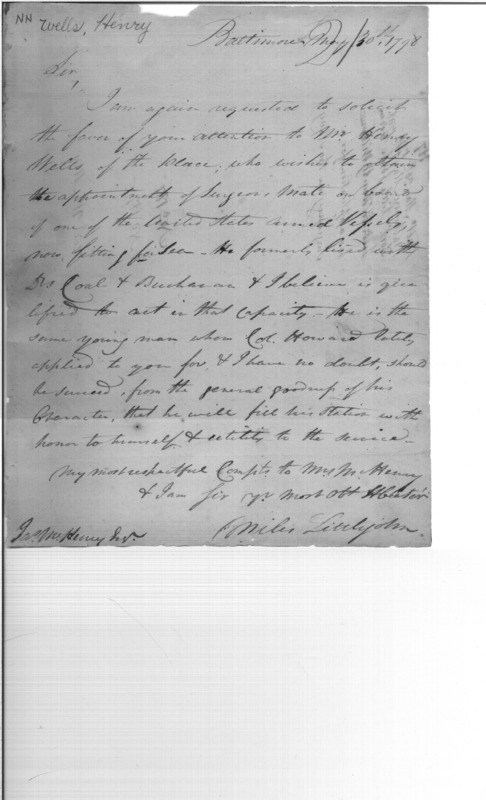 NN Wells, Henry
Baltimore May 30th. 1798
Sir,
I am again requested to solicit
the favor of your attention to Mr Henry
Wells, of the place, who wishes to obtain
the appointment of Surgeons Mate on board
of one of the United States armed Vessels,
now fitting for Sea - He formerly lived with
Drs Coal & Buchanan & I believe is qua
lified to act in that capacity - He is the
same young man whom Col. Howard lately
applied to you for, & I have no doubt, should
he succeed, from the general goodness of his
Character, that he will fill his station with
honor to himself & utility to the service -
My most respectful Compts. to Mrs McHenry
& I am Sir yr most Obt
Miles Littlejohn.
Jas McHenry Esqr.